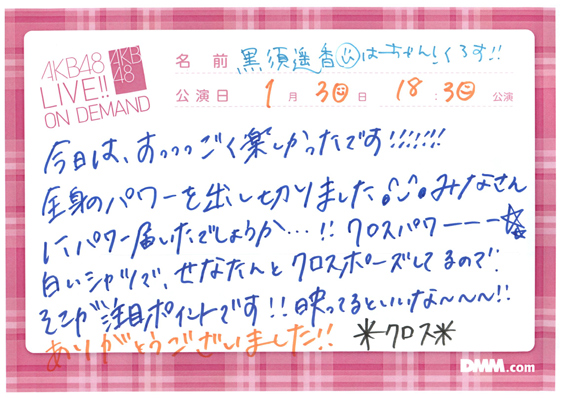 AKB48
LIVE!!
ON DEMAND
AKB
48
名前 黒須遥香 はーちゃん!くろす!!
公演日 1月30日 18:30公演
今日は、すっっっごく楽しかったです!!!!!!
全身のパワーを出し切りました。みなさん
にパワー届いたでしょうか…!! クロスパワーーー☆
白いシャツで、せなたんとクロスポーズしてるので!
そこが注目ポイントです!!映ってるといいな〜〜〜!!
ありがとうございました!! *クロス*
DMM.com